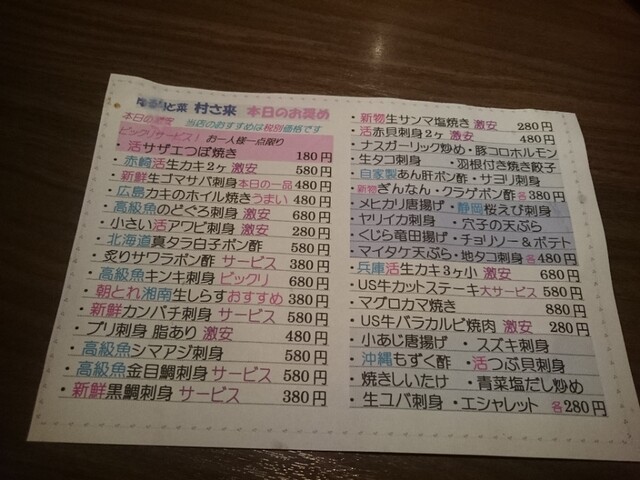 と菜 村さ来 本日のお奨め
本日の
当店のおすすめは税別価格です
ビックリサービス! お一人様一点限り
・活サザエつぼ焼き 180円
・赤崎活生カキ2ヶ 激安 580円
・新鮮生ゴマサバ刺身本日の一品 480円
・広島カキのホイル焼きうまい 480円
・高級魚のどぐろ刺身 激安 680円
・小さい活アワビ刺身 激安 280円
・北海道真タラ白子ポン酢 580円
・炙りサワラポン酢 サービス 380円
・高級魚キンキ刺身 ビックリ 680円
・朝とれ湘南生しらすおすすめ 380円
・新鮮カンパチ刺身 サービス 580円
・ブリ刺身 脂あり 激安 480円
・高級魚シマアジ刺身 580円
・高級魚金目鯛刺身 サービス 580円
・新鮮黒鯛刺身 サービス 380円
・新物生サンマ塩焼き 激安 280円
・活赤貝刺身2ヶ 激安 480円
・ナスガーリック炒め・豚コロホルモン
・生タコ刺身 ・羽根付き焼き餃子
・自家製あん肝ポン酢・サヨリ刺身
・新物ぎんなん・クラゲポン酢 各380円
・メヒカリ唐揚げ・静岡桜えび刺身
・ヤリイカ刺身 ・穴子の天ぷら
・くじら竜田揚げ・チョリソー&ポテト
・マイタケ天ぷら・地タコ刺身 各480円
・兵庫活生カキ3ヶ小 激安 680円
・US牛カットステーキ大サービス 580円
・マグロカマ焼き 880円
・US牛バラカルビ焼肉 激安 280円
・小あじ唐揚げ ・スズキ刺身
・沖縄もずく酢 ・活つぶ貝刺身
・焼きしいたけ ・青菜塩だし炒め
・生コバ刺身 ・エシャレット 各280円